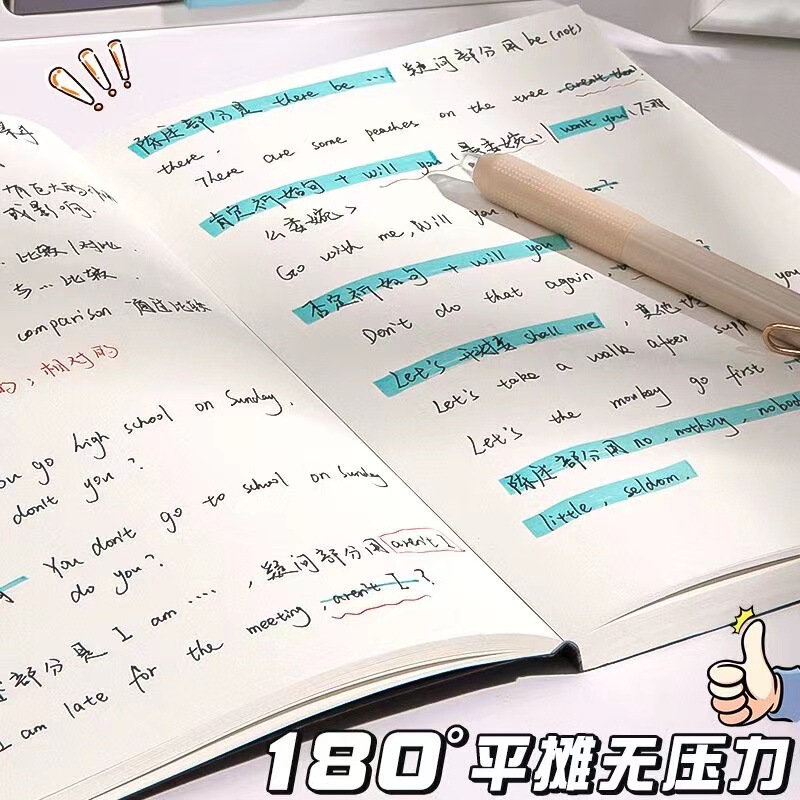 成影响.
... 比较/对比
与... 比较.
comparison 通过比较
的; 相对的
you go high school on Sunday,
don't you?
You don't go to school on Sunday
do you?
部分是 I am ....., 疑问部分用 aren't I
I am late for the meeting, aren't I?
陈述部分是 there be ... 疑问部分用 be (not)
there.
There are some peaches on the tree aren't there?
肯定祈使句 + will you (是委婉) won't you (不那
么委婉)
Go with me, Will you
否定祈使句 + will you
Don't do that again
Let's 开头 shall me, 其他
Let's take a walk after supper you
Let's the monkey go first,
陈述部分用 no, nothing, nobody
little, seldom.
180°平摊无压力